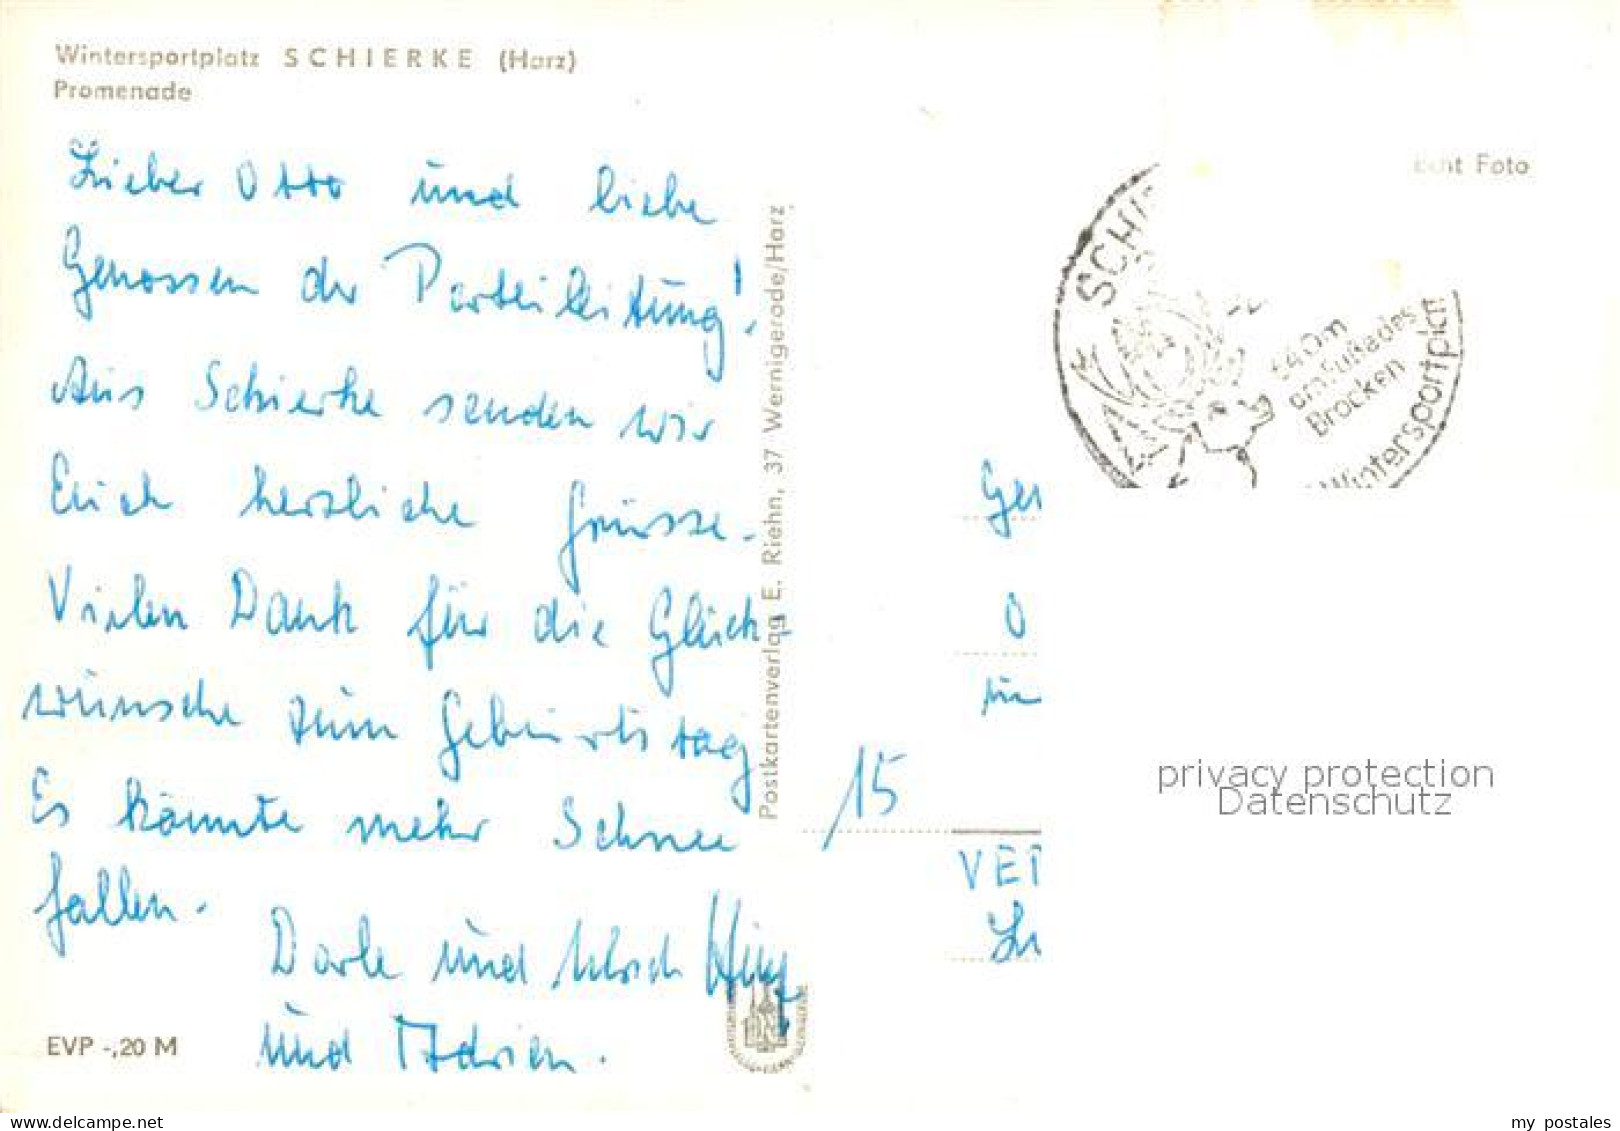 Wintersportplatz SCHIERKE (Harz)
Promenade
Lieber Otto und liebe
Genossen der Parteileitung!
Aus Schierke senden wir
Euch herzliche Grüsse.
Vielen Dank für die Glück-
wünsche zum Geburtstag
Es könnte mehr Schnee
fallen.
Dorle und Ulrich
und Adrien.
EVP -,20 M
Postkartenverlag E. Riehn, 37 Wernigerode/Harz
Echt Foto
SCHI
640m
am Fuße des
Brocken
Wintersportpla
Ge
O
in
15
VE
privacy protection
Datenschutz
my postales